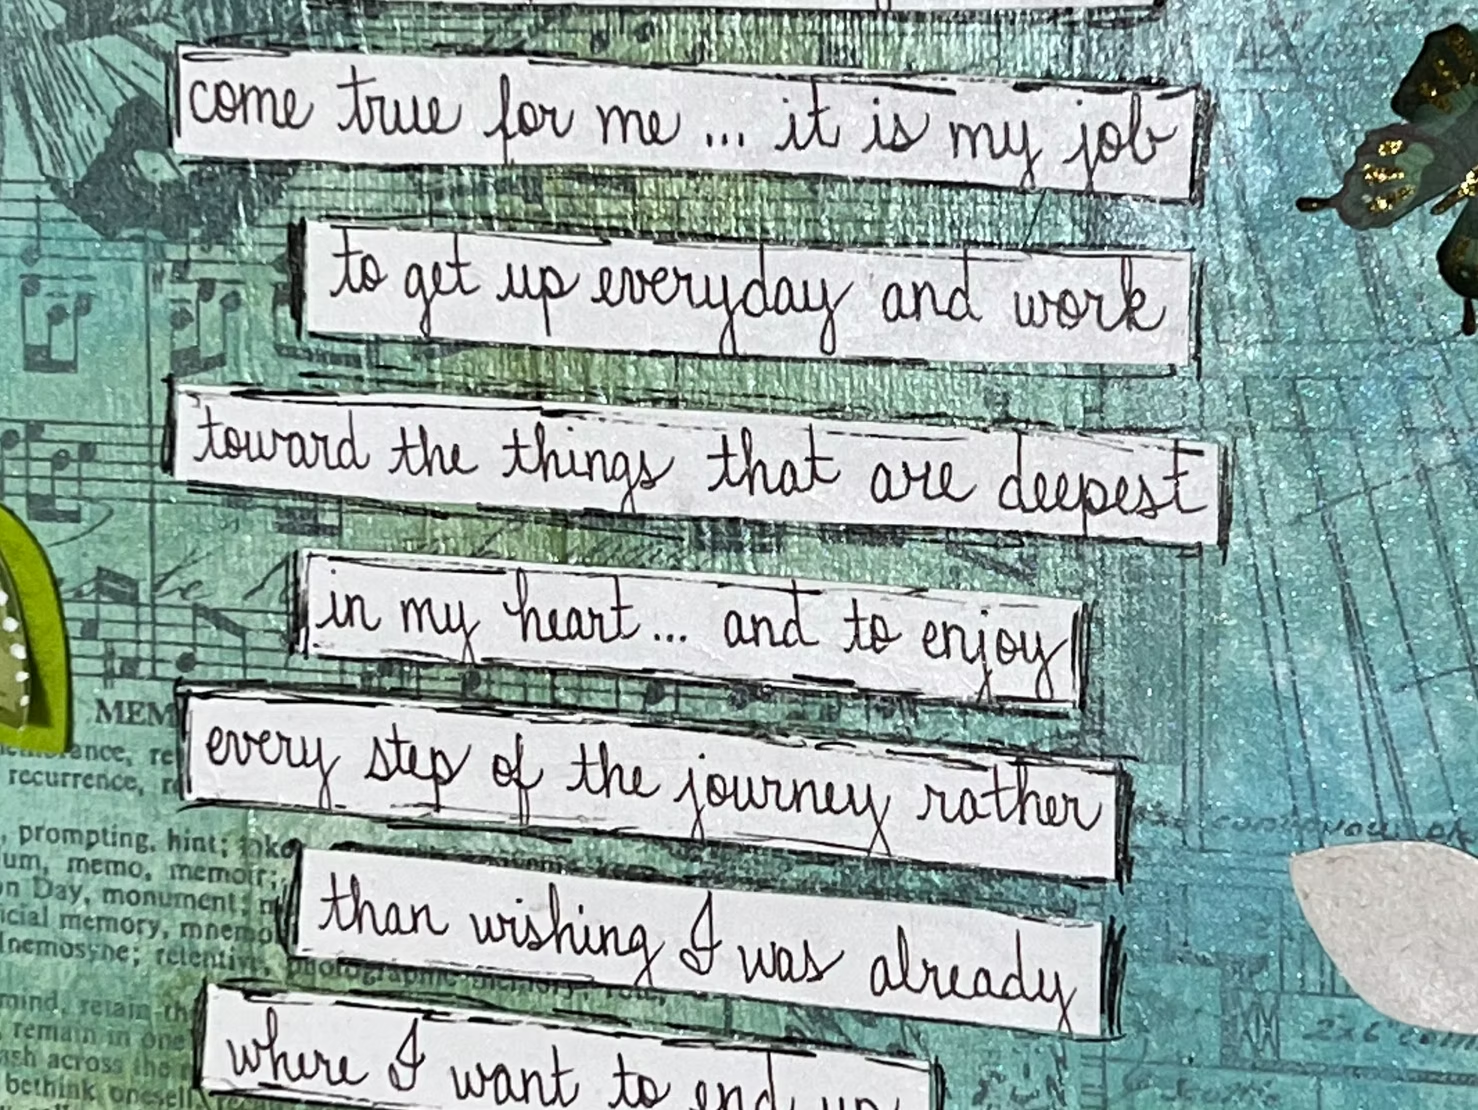 come true for me ... it is my job
to get up everyday and work
toward the things that are deepest
in my heart... and to enjoy
every step of the journey rather
than wishing I was already
where I want to end up
MEM
recurrence,
, prompting, hint;
um, memo, memoir;
n Day, monument;
icial memory,
nemosyne; retentive, photographic
mind, retain
remain in one
ash across the
bethink oneself,
2x6"